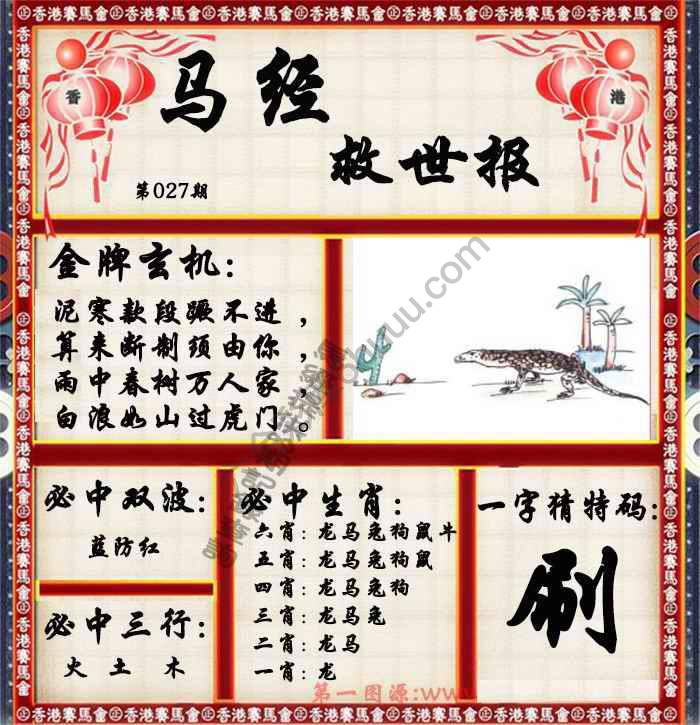 香港賽馬會
香 港
马经
救世报
第027期
金牌玄机：
泥寒款段蹶不进，
算来断制须由你，
雨中春树万人家，
白浪如山过虎门。
必中双波：
蓝防红
必中三行：
火 土 木
必中生肖：
六肖：龙马兔狗鼠牛
五肖：龙马兔狗鼠
四肖：龙马兔狗
三肖：龙马兔
二肖：龙马
一肖：龙
一字猜特码：
刷
第一图源:www